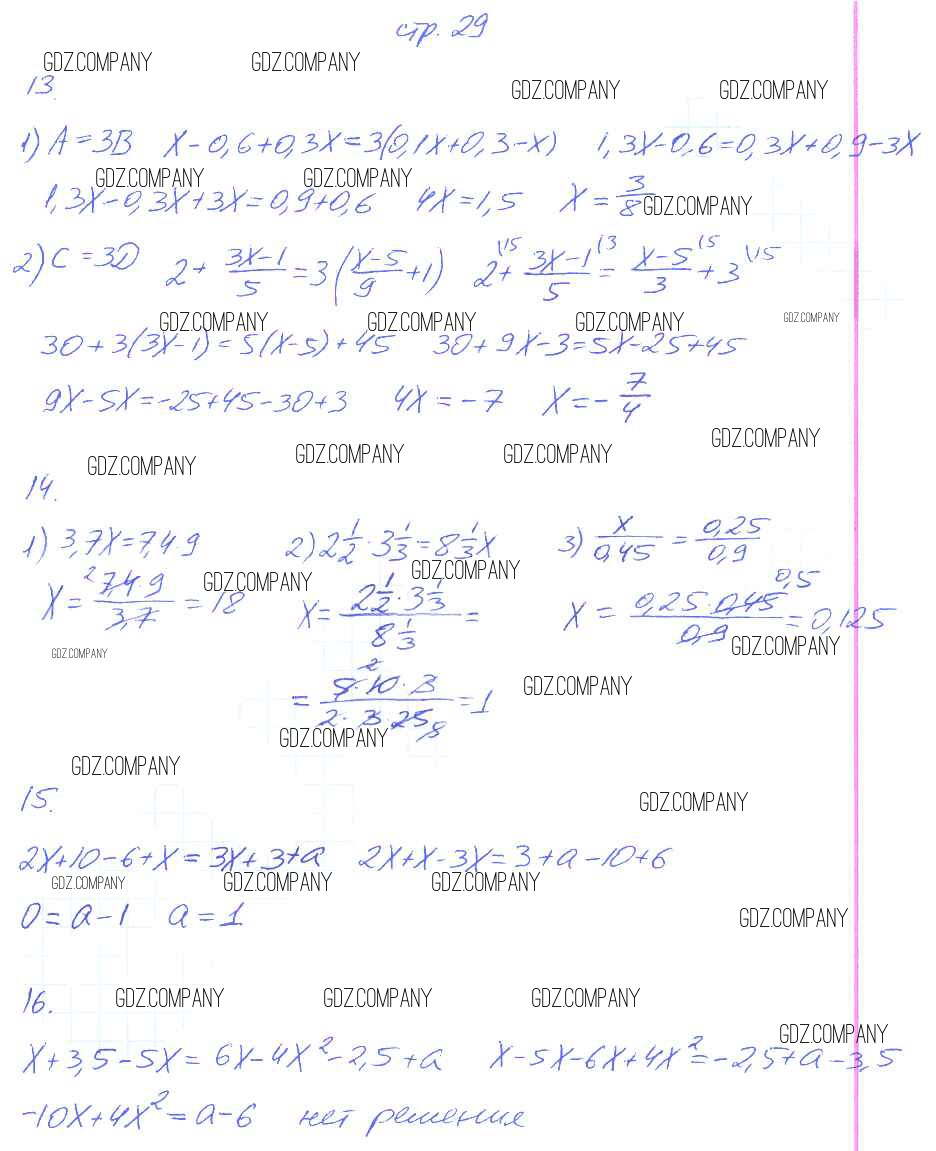 стр. 29
GDZ.COMPANY GDZ.COMPANY
13. GDZ.COMPANY GDZ.COMPANY
1) A=3B x-0,6+0,3x=3(0,1x+0,3-x) 1,3x-0,6=0,3x+0,9-3x
GDZ.COMPANY GDZ.COMPANY
1,3x-0,3x+3x=0,9+0,6 4x=1,5 x=3/8 GDZ.COMPANY
2) C=3D 2+ (3x-1)/5 =3((x-5)/9 +1) 2\15 + (3x-1)/5 \3 = (x-5)/3 \5 + 3\15
GDZ.COMPANY GDZ.COMPANY GDZ.COMPANY GDZ.COMPANY
30+3(3x-1)=5(x-5)+45 30+9x-3=5x-25+45
9x-5x=-25+45-30+3 4x=-7 x=-7/4
GDZ.COMPANY GDZ.COMPANY GDZ.COMPANY GDZ.COMPANY
14.
1) 3,7x=7,4·9 2) 2 1/2 · 3 1/3 = 8 1/3 x 3) x/0,45 = 0,25/0,9
GDZ.COMPANY GDZ.COMPANY
x= 7,4·9/3,7 = 18 x= (2 1/2 · 3 1/3)/(8 1/3) = x = 0,25·0,45/0,9 = 0,125
2 0,5
GDZ.COMPANY GDZ.COMPANY
= 5·10·3/2·3·25 = 1 GDZ.COMPANY
GDZ.COMPANY
GDZ.COMPANY
15. GDZ.COMPANY
2x+10-6+x=3x+3+a 2x+x-3x=3+a-10+6
GDZ.COMPANY GDZ.COMPANY GDZ.COMPANY
0=a-1 a=1 GDZ.COMPANY
16. GDZ.COMPANY GDZ.COMPANY GDZ.COMPANY
GDZ.COMPANY
x+3,5-5x=6x-4x²-2,5+a x-5x-6x+4x²=-2,5+a-3,5
-10x+4x²=a-6 нет решение